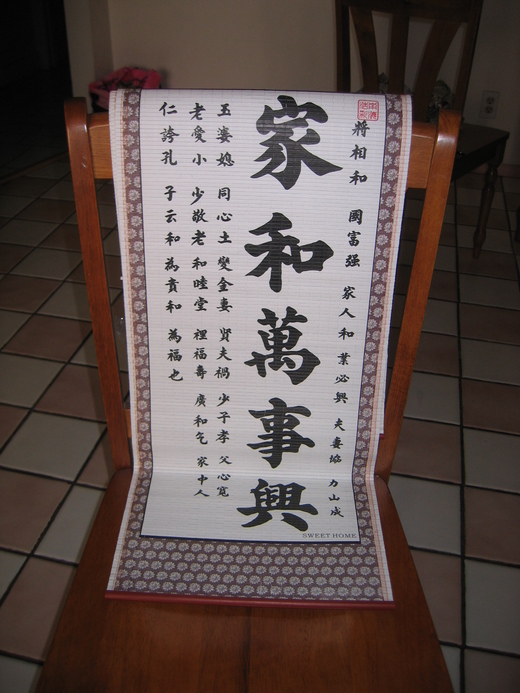 將相和 國富强 家人和 業必興 夫妻協 力山成
家和萬事興
玉婆媳 同心土 變金妻 賢夫禍 少子孝 父心寬
老愛小 少敬老 和睦堂 裡福壽 廣和气 家中人
仁誇孔 子云和 為貴和 為福也
SWEET HOME